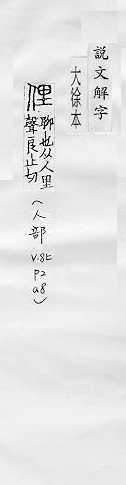 說文解字
大徐本
俚 聊也从人里
聲良止切
(人部
V.8上
P2
a8)